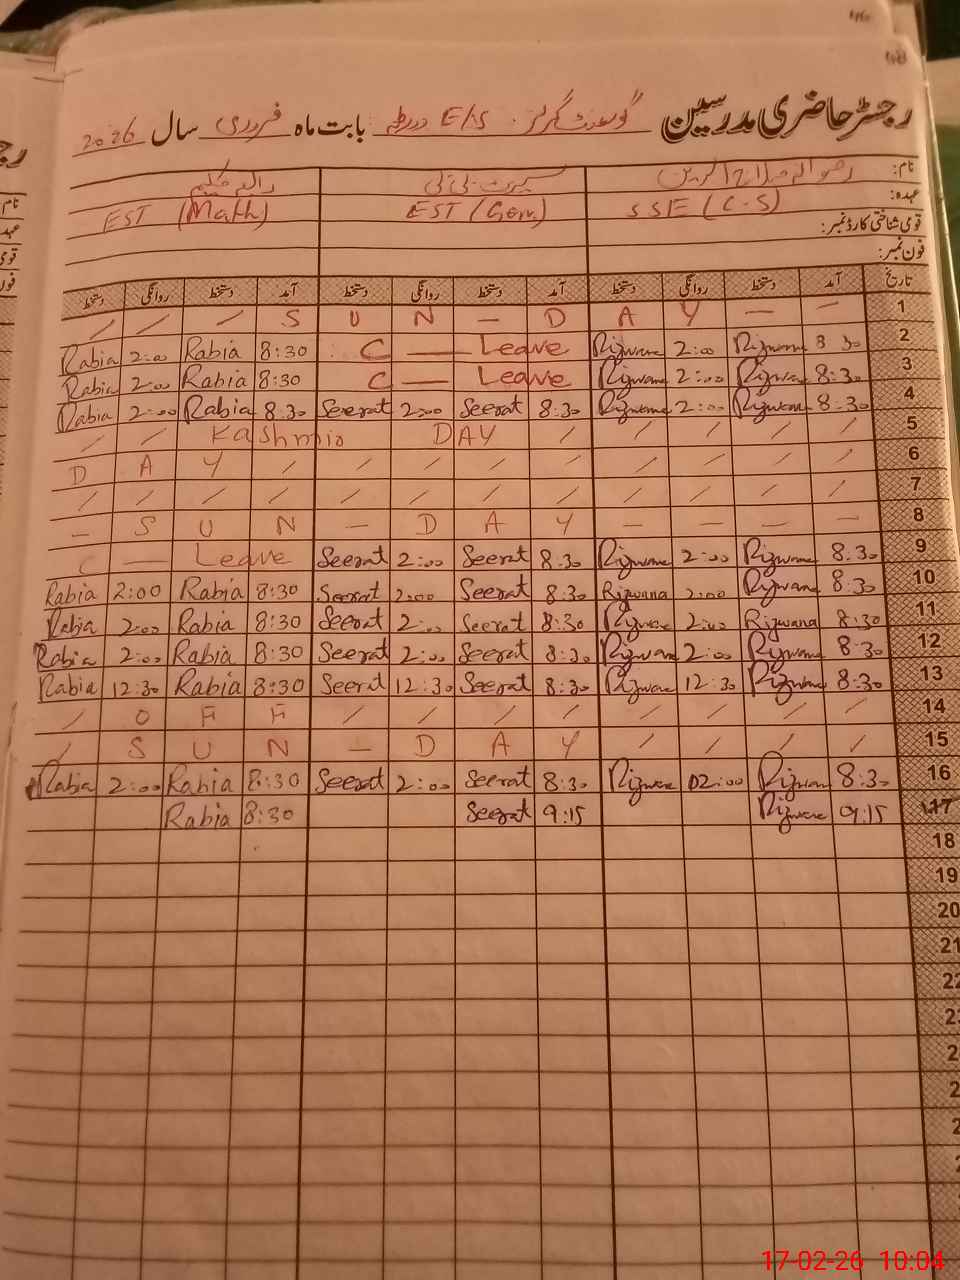 46
48
رجسٹر حاضری مدرسین گورنمنٹ گرلز E/S بابت ماہ فروری سال 2026
نام:
عہدہ: SSE (C-S) EST (Gen) EST (Math)
قومی شناختی کارڈ نمبر:
فون نمبر:
تاریخ آمد دستخط روانگی دستخط آمد دستخط روانگی دستخط آمد دستخط روانگی دستخط
/ / / S U N — D A Y — / 1
Rabia 2:00 Rabia 8:30 C — Leave Rizwana 2:00 Rizwana 8 30 2
Rabia 2:00 Rabia 8:30 C — Leave Rizwana 2:00 Rizwana 8:30 3
Rabia 2:00 Rabia 8:30 Seerat 2:00 Seerat 8:30 Rizwana 2:00 Rizwana 8:30 4
/ / Kashmir DAY / / / / / 5
D A Y / / / / / / / / / 6
/ / / / / / / / / / / / 7
— S U N — D A Y — — — — 8
C — Leave Seerat 2:00 Seerat 8:30 Rizwana 2:00 Rizwana 8:30 9
Rabia 2:00 Rabia 8:30 Seerat 2:00 Seerat 8:30 Rizwana 2:00 Rizwana 8:30 10
Rabia 2:00 Rabia 8:30 Seerat 2:00 Seerat 8:30 Rizwana 2:00 Rizwana 8:30 11
Rabia 2:00 Rabia 8:30 Seerat 2:00 Seerat 8:30 Rizwana 2:00 Rizwana 8:30 12
Rabia 12:30 Rabia 8:30 Seerat 12:30 Seerat 8:30 Rizwana 12:30 Rizwana 8:30 13
/ O F F / / / / / / / / 14
/ S U N — D A Y / / / / 15
Rabia 2:00 Rabia 8:30 Seerat 2:00 Seerat 8:30 Rizwana 02:00 Rizwana 8:30 16
Rabia 8:30 Seerat 9:15 Rizwana 09:15 17
18
19
20
21
22
17-02-26 10:04